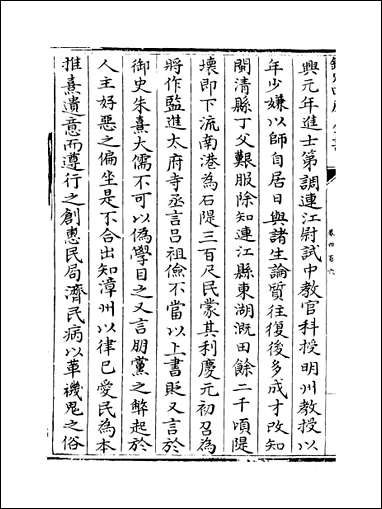 興元年進士第調連江尉試中教官科授明州教授以
年少嫌以師自居日與諸生論質往復後多成才改知
閩清縣丁父艱服除知連江縣東湖溉田餘二千頃隄
壞即下流南港為石隄三百尺民蒙其利慶元初召為
將作監進太府寺丞言呂祖儉不當以上書貶又言於
御史朱熹大儒不可以偽學目之又言朋黨之弊起於
人主好惡之偏坐是不合出知漳州以律己愛民為本
推熹遺意而遵行之創惠民局濟民病以革禨鬼之俗
卷四百六